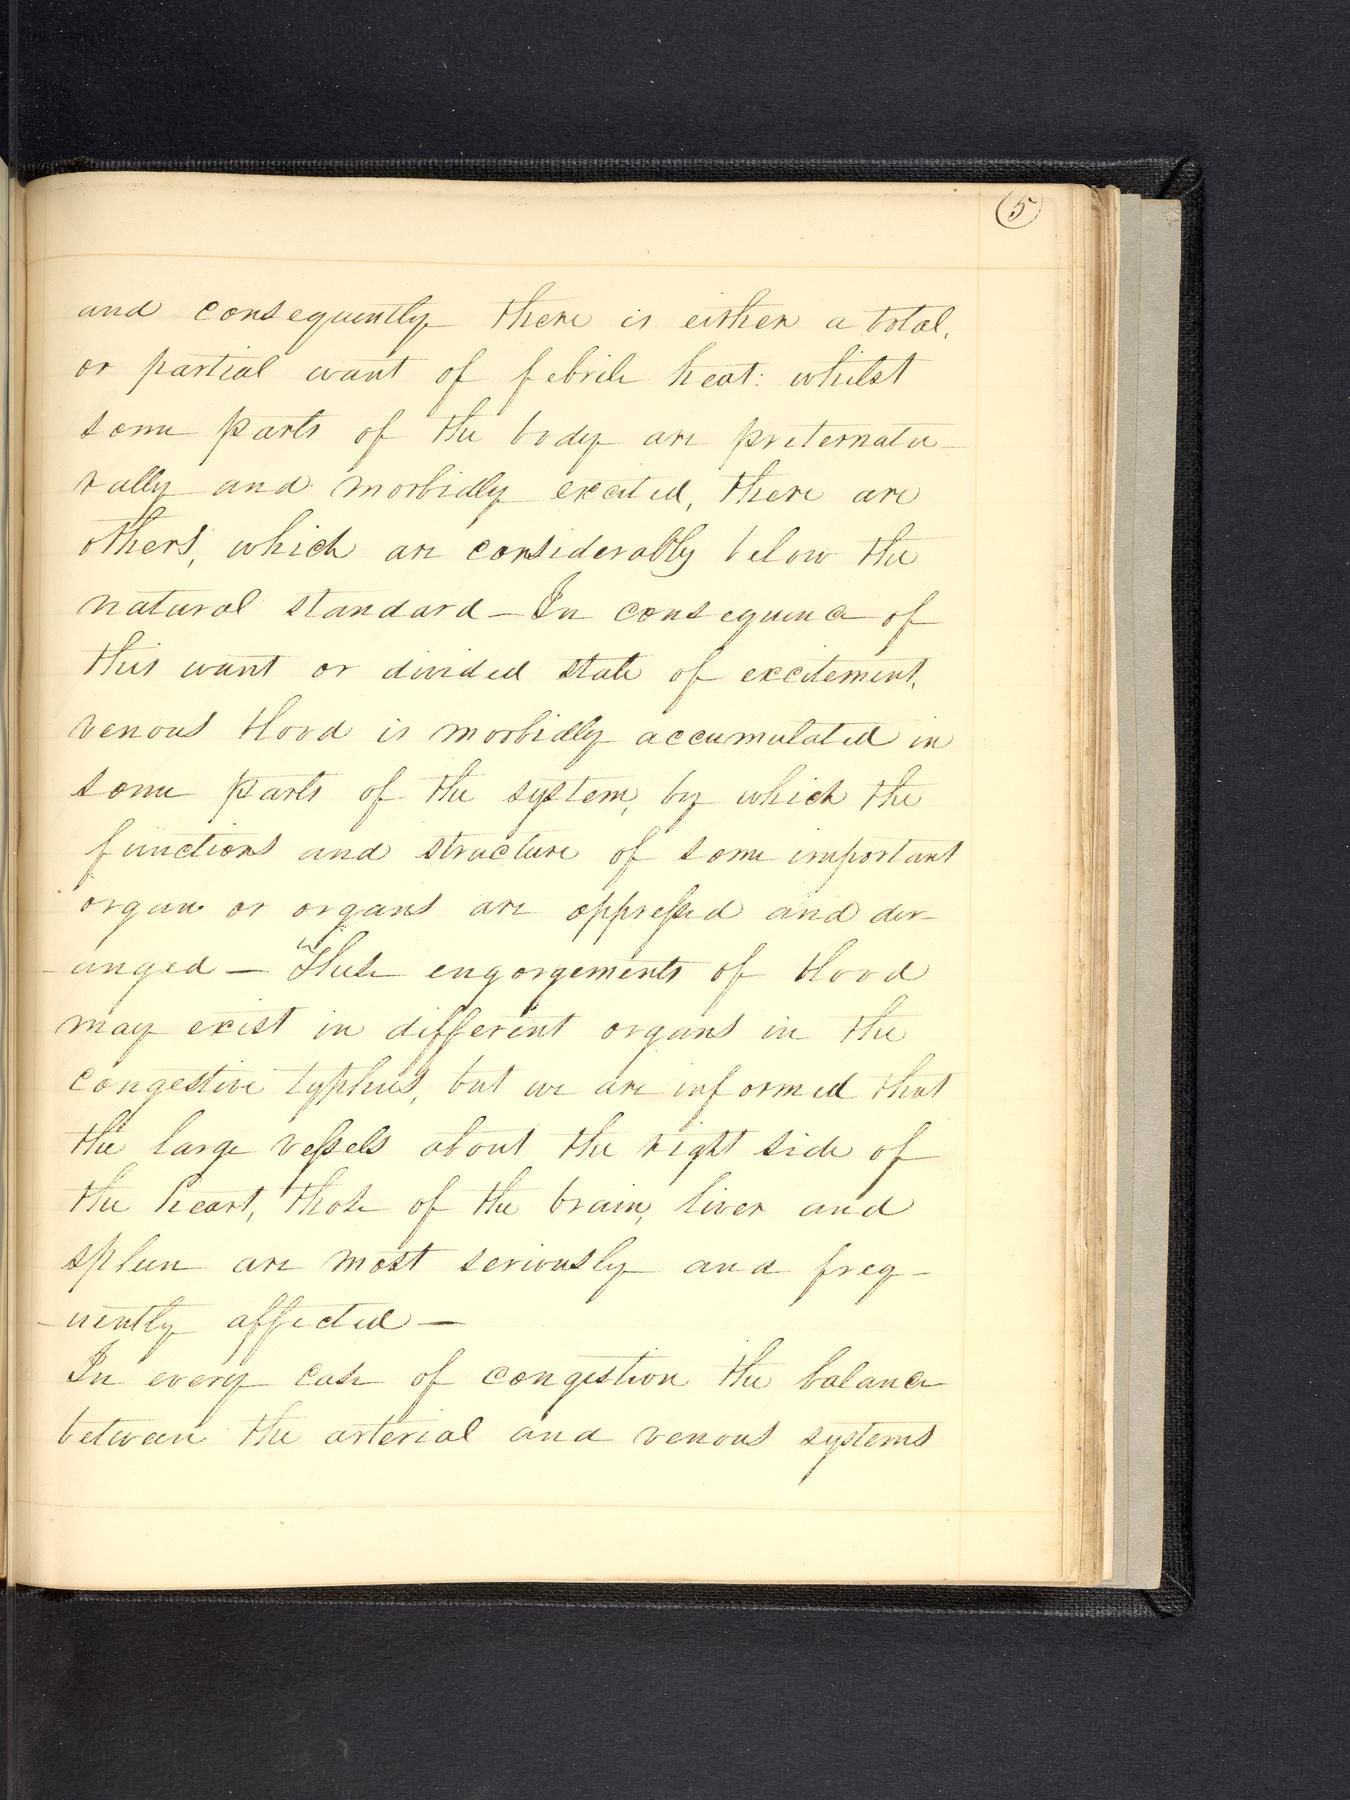 5
and consequently there is either a total,
or partial want of febrile heat: whilst
some parts of the body are preternatu-
rally and morbidly excited, there are
others, which are considerably below the
natural standard — In consequence of
this want or divided state of excitement,
venous blood is morbidly accumulated in
some parts of the system, by which the
functions and structure of some important
organ or organs are oppressed and der-
-anged — These engorgements of blood
may exist in different organs in the
congestive typhus, but we are informed that
the large vessels about the right side of
the heart, those of the brain, liver and
spleen are most seriously and freq-
-uently affected —
In every case of congestion the balance
between the arterial and venous systems